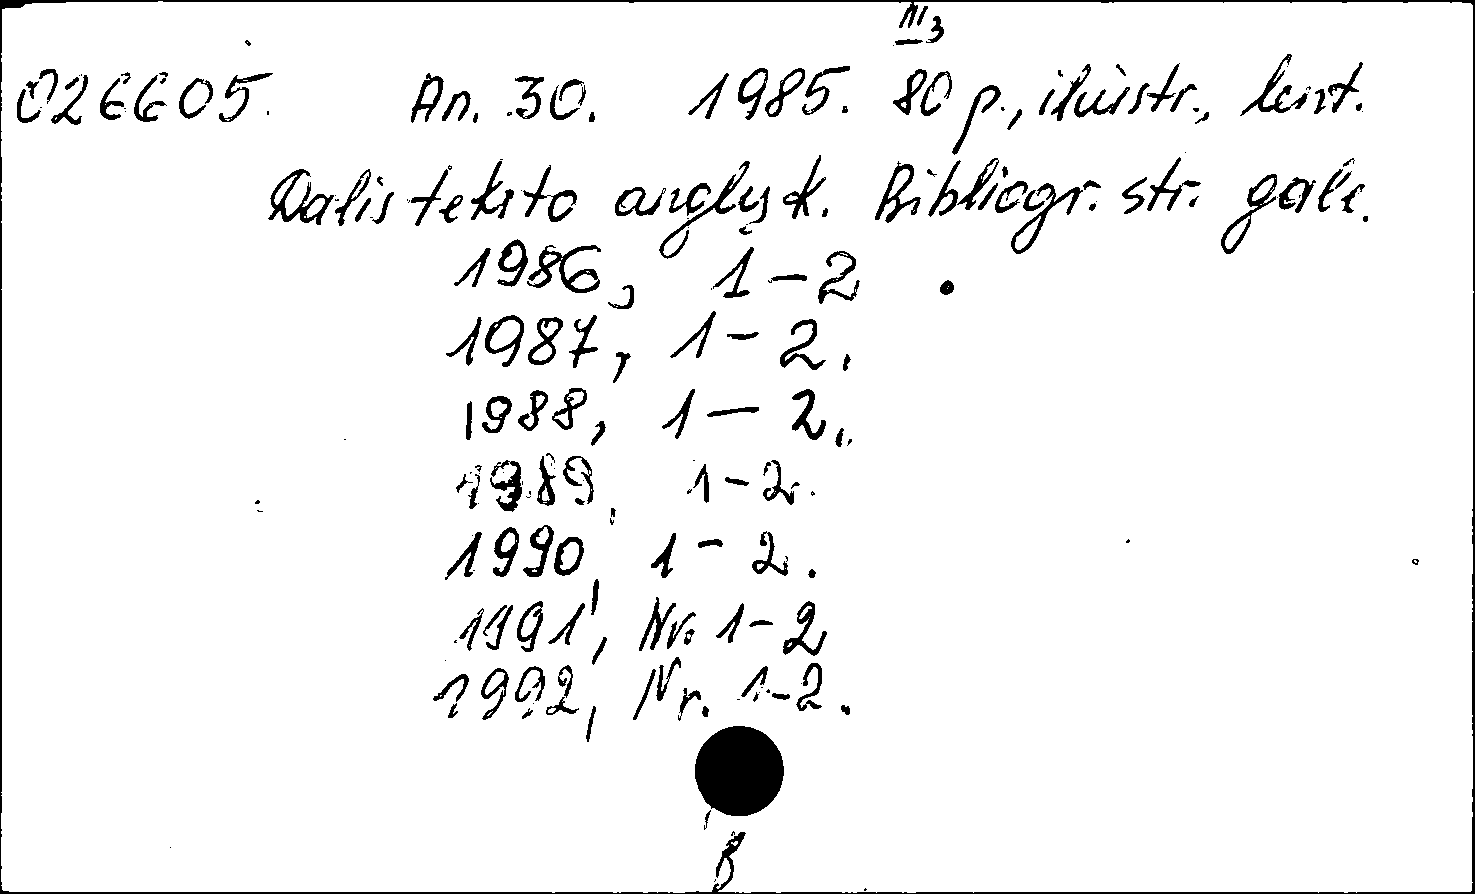 III3
026605. An. 30. 1985. 80 p., iliustr., lent.
Dalis teksto anglų k. Bibliogr. str. gale.
1986, 1-2
1987, 1-2.
1988, 1-2.
1989, 1-2.
1990, 1-2.
1991, Nr. 1-2
1992, Nr. 1-2.
B